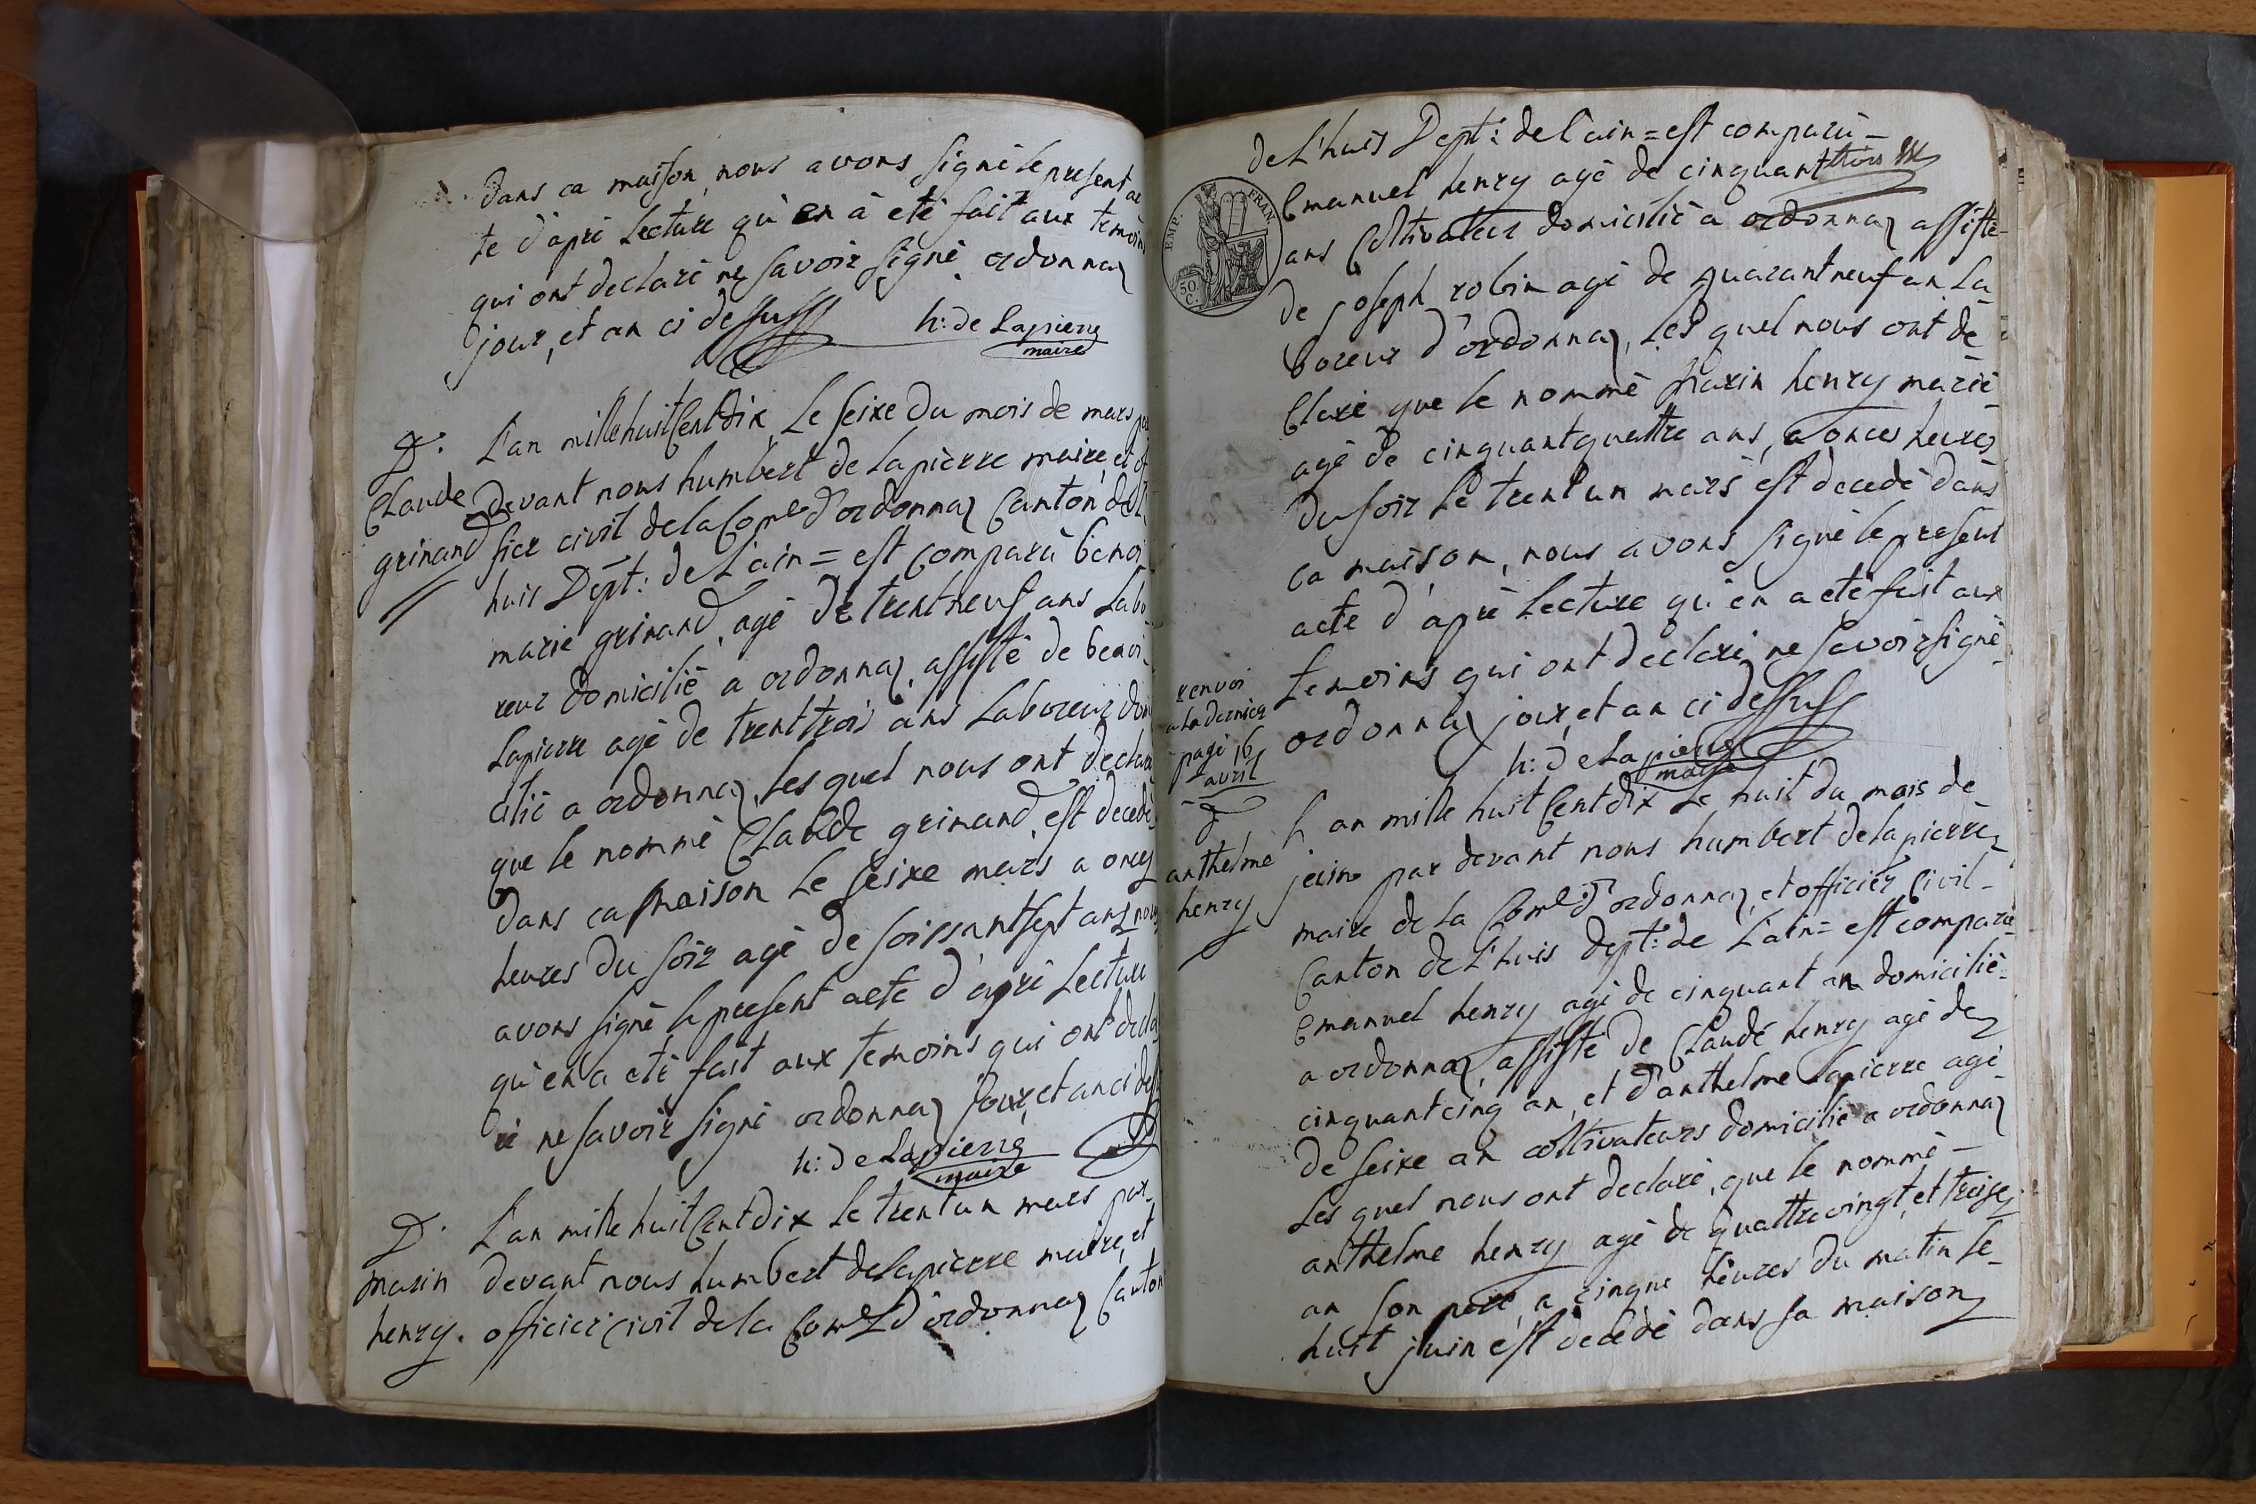 dans ca maison, nous avons signè le present ac
te d'aprè Lecture qu'en à etè fait aux temoins
qui ont declarè ne savoir signè ordonnaz
jour, et an ci dessuss
h: de Lapierre
maire
D.
Claude
grinand
L'an mille huit Cent dix Le seixe du mois de mars par
Devant nous humbert de Lapierre maire, et of
ficier civil de la Com.e d'ordonnaz Canton de L'
huis Dept: de L'ain = est comparù benoi
marie grinand, agè de trent neuf ans Labo
reur domiciliè a ordonnaz, assistè de benoi
Lapierre agè de trent trois ans Laboreur domi
ciliè a ordonnaz, Les quel nous ont declarè
que le nommè Claude grinand, est decedè
dans ca maison Le seixe mars a onces
heures du soir agè de soissant sept ans, nous
avons signè le present acte d'aprè Lecture
qu'en a etè fait aux temoins qui ont decla
rè ne savoir signè ordonnaz jour, et an ci des
h: de Lapierre
maire
D.
marin
henry.
L'an mille huit Cent dix Le trent un mars par
devant nous humbert de Lapierre maire, et
officier civil de la Com.e d'ordonnaz Canton
de L'huis Dept: de l'ain = est comparù
Emanuel henry agè de cinquant trois
EMP. FRAN.
50 C.
ans Coltivateur domiciliè a ordonnaz assistè
de joseph robin agè de quarant neuf an La
boreur d'ordonnaz, Les quel nous ont de
Clarè que le nommè marin henry mariè
agè de cinquant quattre ans, a onces heures
du soir Le trent un mars est decedè dans
ca maison, nous avons signè le present
acte d'aprè Lecture qu'en a etè fait aux
temoins qui ont declarè ne savoir signè
ordonnaz jour, et an ci dessuss
h: de Lapierre
maire
renvoi
a la dernier
page 16
avril
D
anthelme
henry
L'an mille huit Cent dix Le huit du mois de
juin par devant nous humbert de Lapierre
maire de la Com.e d'ordonnaz, et officier Civil
Canton de L'huis dept: de L'ain = est comparù
Emanuel henry agè de cinquant an domiciliè
a ordonnaz, assistè de Claude henry agè de
cinquant cinq an, et d'anthelme Lapierre agè
de seixe an coltivateurs domiciliè a ordonnaz
Les quel nous ont declarè, que le nommè
anthelme henry agè de quattre vingt, et treise
an son pere a cinque heures du matin le
huit juin est decedè dans sa maison